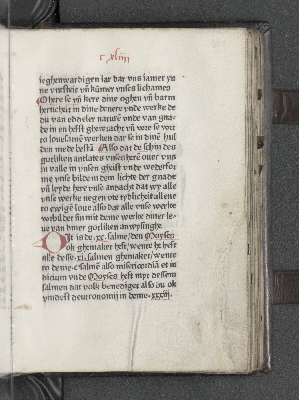 c xliiij
ieghenwardigen iar dar vns iamer yn
ne vnsteit vn̄ kūmer vnses lichames
O here se yn̄ kere dine oghen vn̄ barm
herticheit in dine denere vnde werke de
du van eddeler naturē vnde van gna
de in en hefst ghewracht vn̄ vore se vort
to louesamē werken dar se in dinē hul
den mede bestā Also dat de schin des
gotliken antlates vnses herē ouer vns
in valle in vnsen gheist an vnde wedeforme
vnse bilde in dem lichte der gnade
vn̄ leyde here vnse andacht dat wy alle
vnse werke negen vte tytlicheit allene
to ewiger loue also dat alle vnse werke
webilder sin mit deme werke diner le
ue van dyner gotliken anwysinghe
Dit is de .xc. salme / den Moyses
ok ghemaket heft / wente he heft
alle desse .xi. salmen ghemaket / wente
to deme .c. salmē also misericordiā et iu
dicium vnde Moyses heft myt dessem
salmen dat volk benediget also du ok
vindest deutronomij in deme .xxxiij.